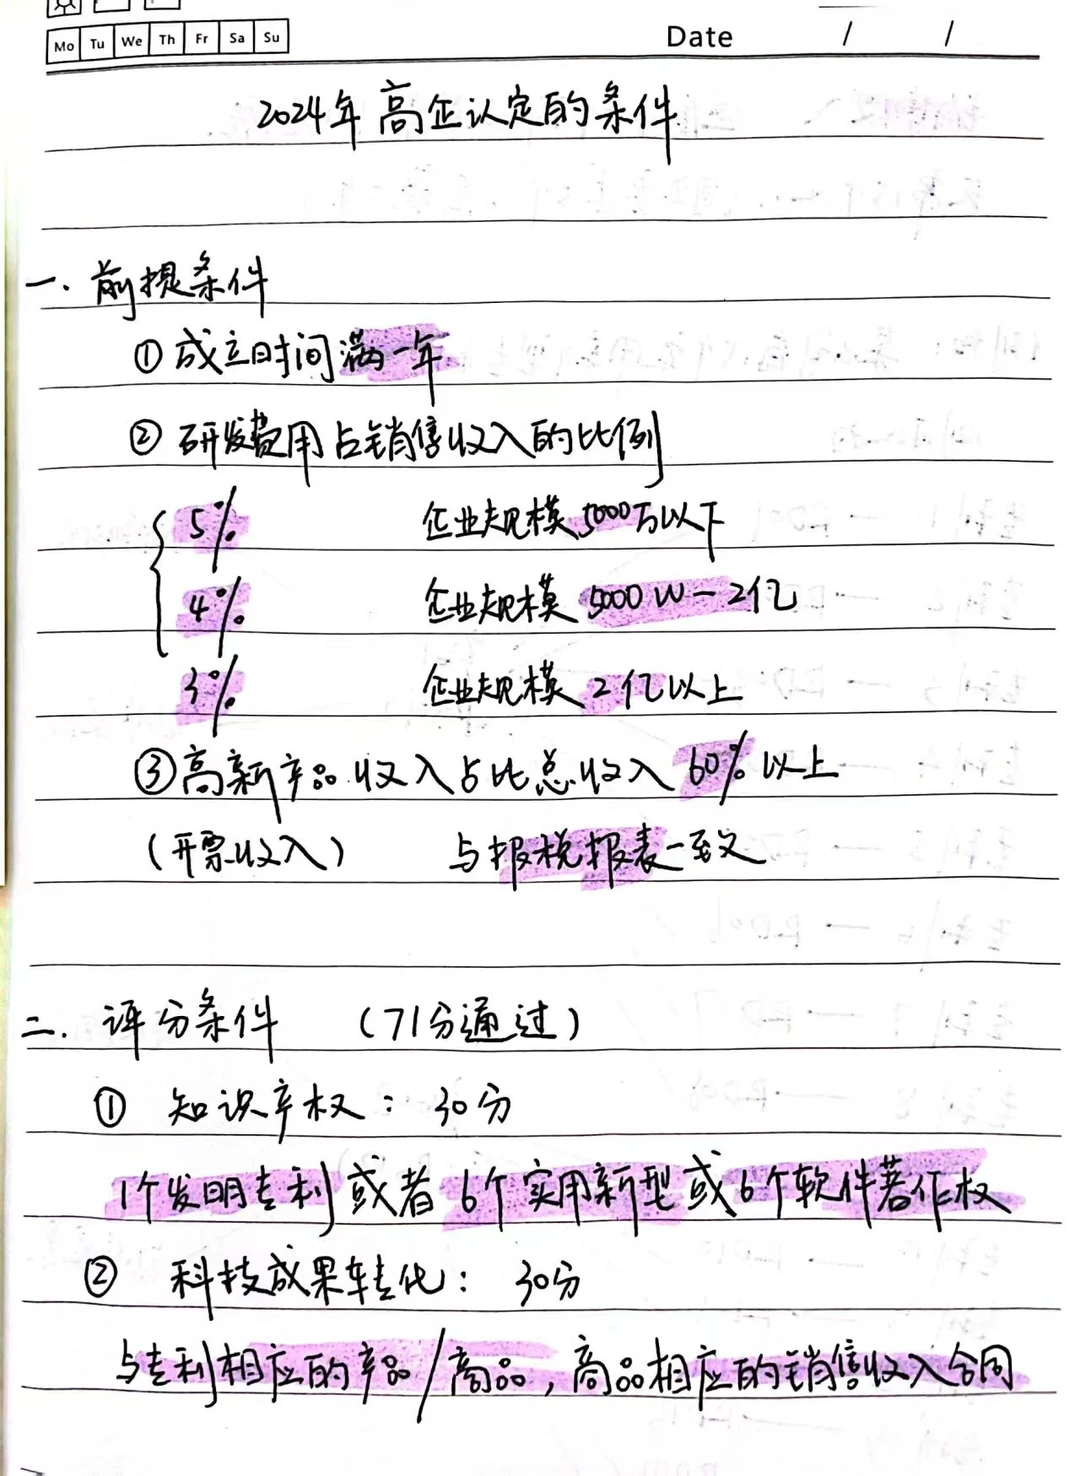 Mo Tu We Th Fr Sa Su
Date / /
2024年高企认定的条件
一. 前提条件
① 成立时间满一年
② 研发费用占销售收入的比例
5% 企业规模 5000万以下
4% 企业规模 5000W—2亿
3% 企业规模 2亿以上
③ 高新产品收入占比总收入60%以上
(开票收入) 与报税报表一致
二. 评分条件 (71分通过)
① 知识产权: 30分
1个发明专利或者6个实用新型或6个软件著作权
② 科技成果转化: 30分
与专利相应的产品/商品, 商品相应的销售收入合同